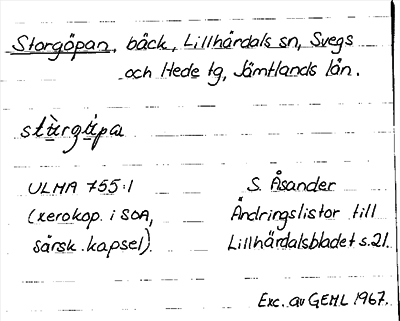 Storgöpan, bäck, Lillhärdals sn, Svegs
och Hede tg, Jämtlands län.
ULMA 755:1
(xerokop. i SOA,
särsk. kapsel).
S. Åsander
Ändringslistor till
Lillhärdalsbladet s.21.
Exc. av GEHL 1967.